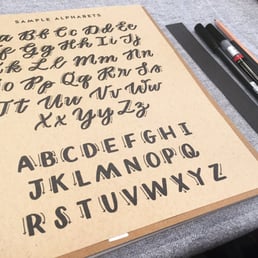 SAMPLE ALPHABETS
a Bb Cc Dd Ee
Ff Gg Hh Ii Jj
Kk Ll Mm Nn
Oo Pp Qq Rr Ss
Tt Uu Vv Ww
Xx Yy Zz
ABCDEFGHI
JKLMNOPQ
RSTUVWXYZ